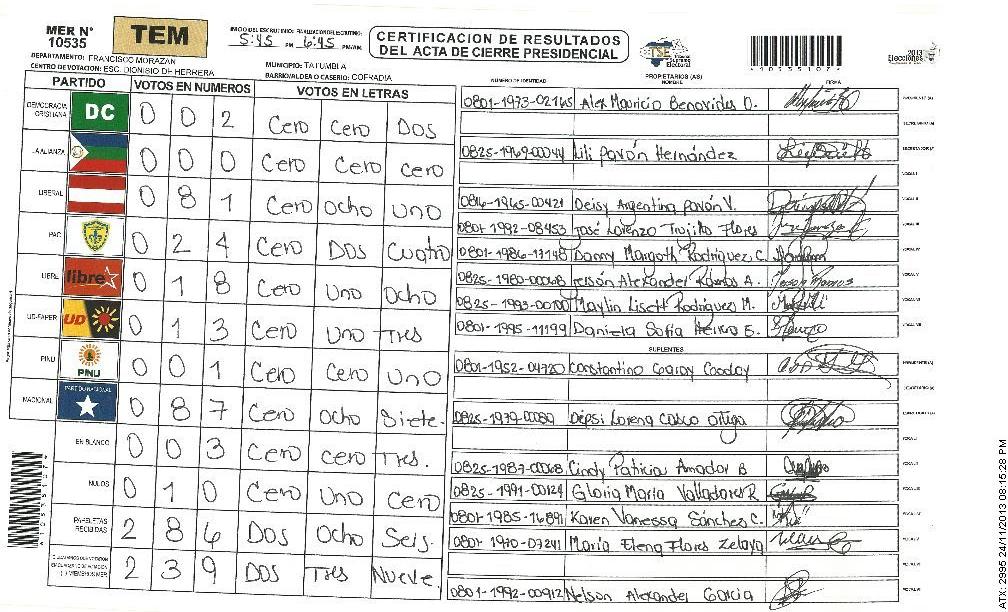 MER N° 10535
TEM
INICIO DEL ESCRUTINIO: FINALIZACION DEL ESCRUTINIO:
5:45 PM 6:45 PM/AM
CERTIFICACION DE RESULTADOS
DEL ACTA DE CIERRE PRESIDENCIAL
TSE Tribunal Supremo Electoral
2013 Elecciones
DEPARTAMENTO: FRANCISCO MORAZAN
MUNICIPIO: TATUMBLA
CENTRO DE VOTACION: ESC. DIONISIO DE HERRERA
BARRIO/ALDEA O CASERIO: COFRADIA
PARTIDO VOTOS EN NUMEROS VOTOS EN LETRAS
DEMOCRACIA CRISTIANA DC 0 0 2 Cero Cero Dos
LA ALIANZA 0 0 0 Cero Cero cero
LIBERAL 0 8 1 Cero Ocho uno
PAC 0 2 4 Cero Dos Cuatro
LIBRE libre 0 1 8 Cero Uno Ocho
UD-FAPER UD 0 1 3 Cero Uno Tres
PINU PINU 0 0 1 Cero Cero Uno
NACIONAL PARTIDO NACIONAL 0 8 7 Cero Ocho Siete.
EN BLANCO 0 0 3 Cero cero Tres.
NULOS 0 1 0 Cero Uno Cero
PAPELETAS RECIBIDAS 2 8 6 Dos Ocho Seis.
2 3 9 DOS Tres Nueve.
NUMERO DE IDENTIDAD PROPIETARIOS (AS) NOMBRE FIRMA
0801-1973-02165 Alex Mauricio Benavides O.
0825-1969-00044 Lili Pavón Hernández
0816-1965-00421 Deisy Argentina Pavón V.
0801-1992-08453 José Lorenzo Trujillo Flores
0801-1986-17148 Danny Margoth Rodriguez C.
0825-1980-00068 Jerson Alexander Ramos A.
0825-1993-00100 Maylin Lisett Rodriguez M.
0801-1995-11199 Daniela Sofia E.
SUPLENTES
0801-1952-04720 Constantino Garay
0825-1979-00089 Depsi Lorena Casco Ortiga
0825-1987-00068 Cindy Patricia Amador B
0825-1991-00124 Gloria Maria Valladares R.
0801-1985-16891 Karen Vanessa Sánchez C.
0801-1970-07241 María Elena Flores Zelaya
0801-1992-00912 Nelson Alexander Garcia
ATX 2995 24/11/2013 08:15:28 PM